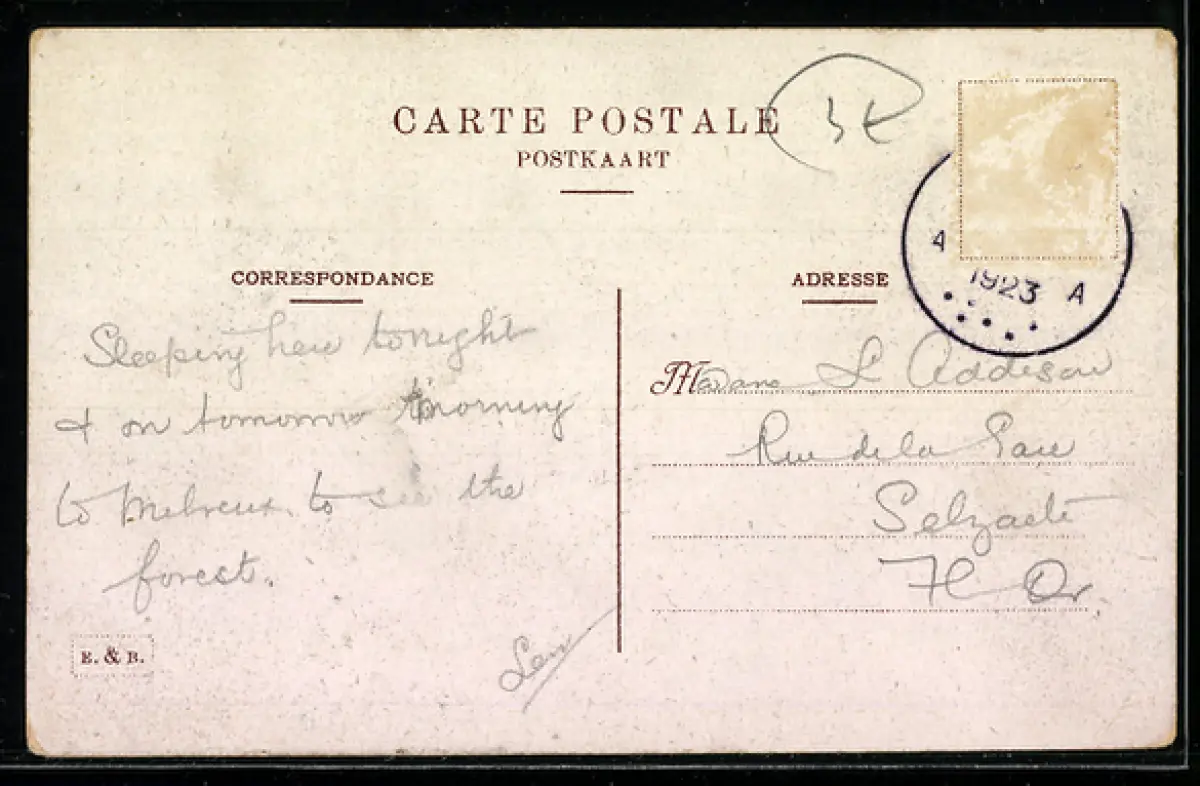 CARTE POSTALE
POSTKAART
3 €
A 1923 A
CORRESPONDANCE
ADRESSE
Sleeping here tonight
& on tomorrow morning
to Melreux to see the
forest.
Len
Madame L Addison
Rue de la Paix
Selzaete
Fl Or.
E. & B.